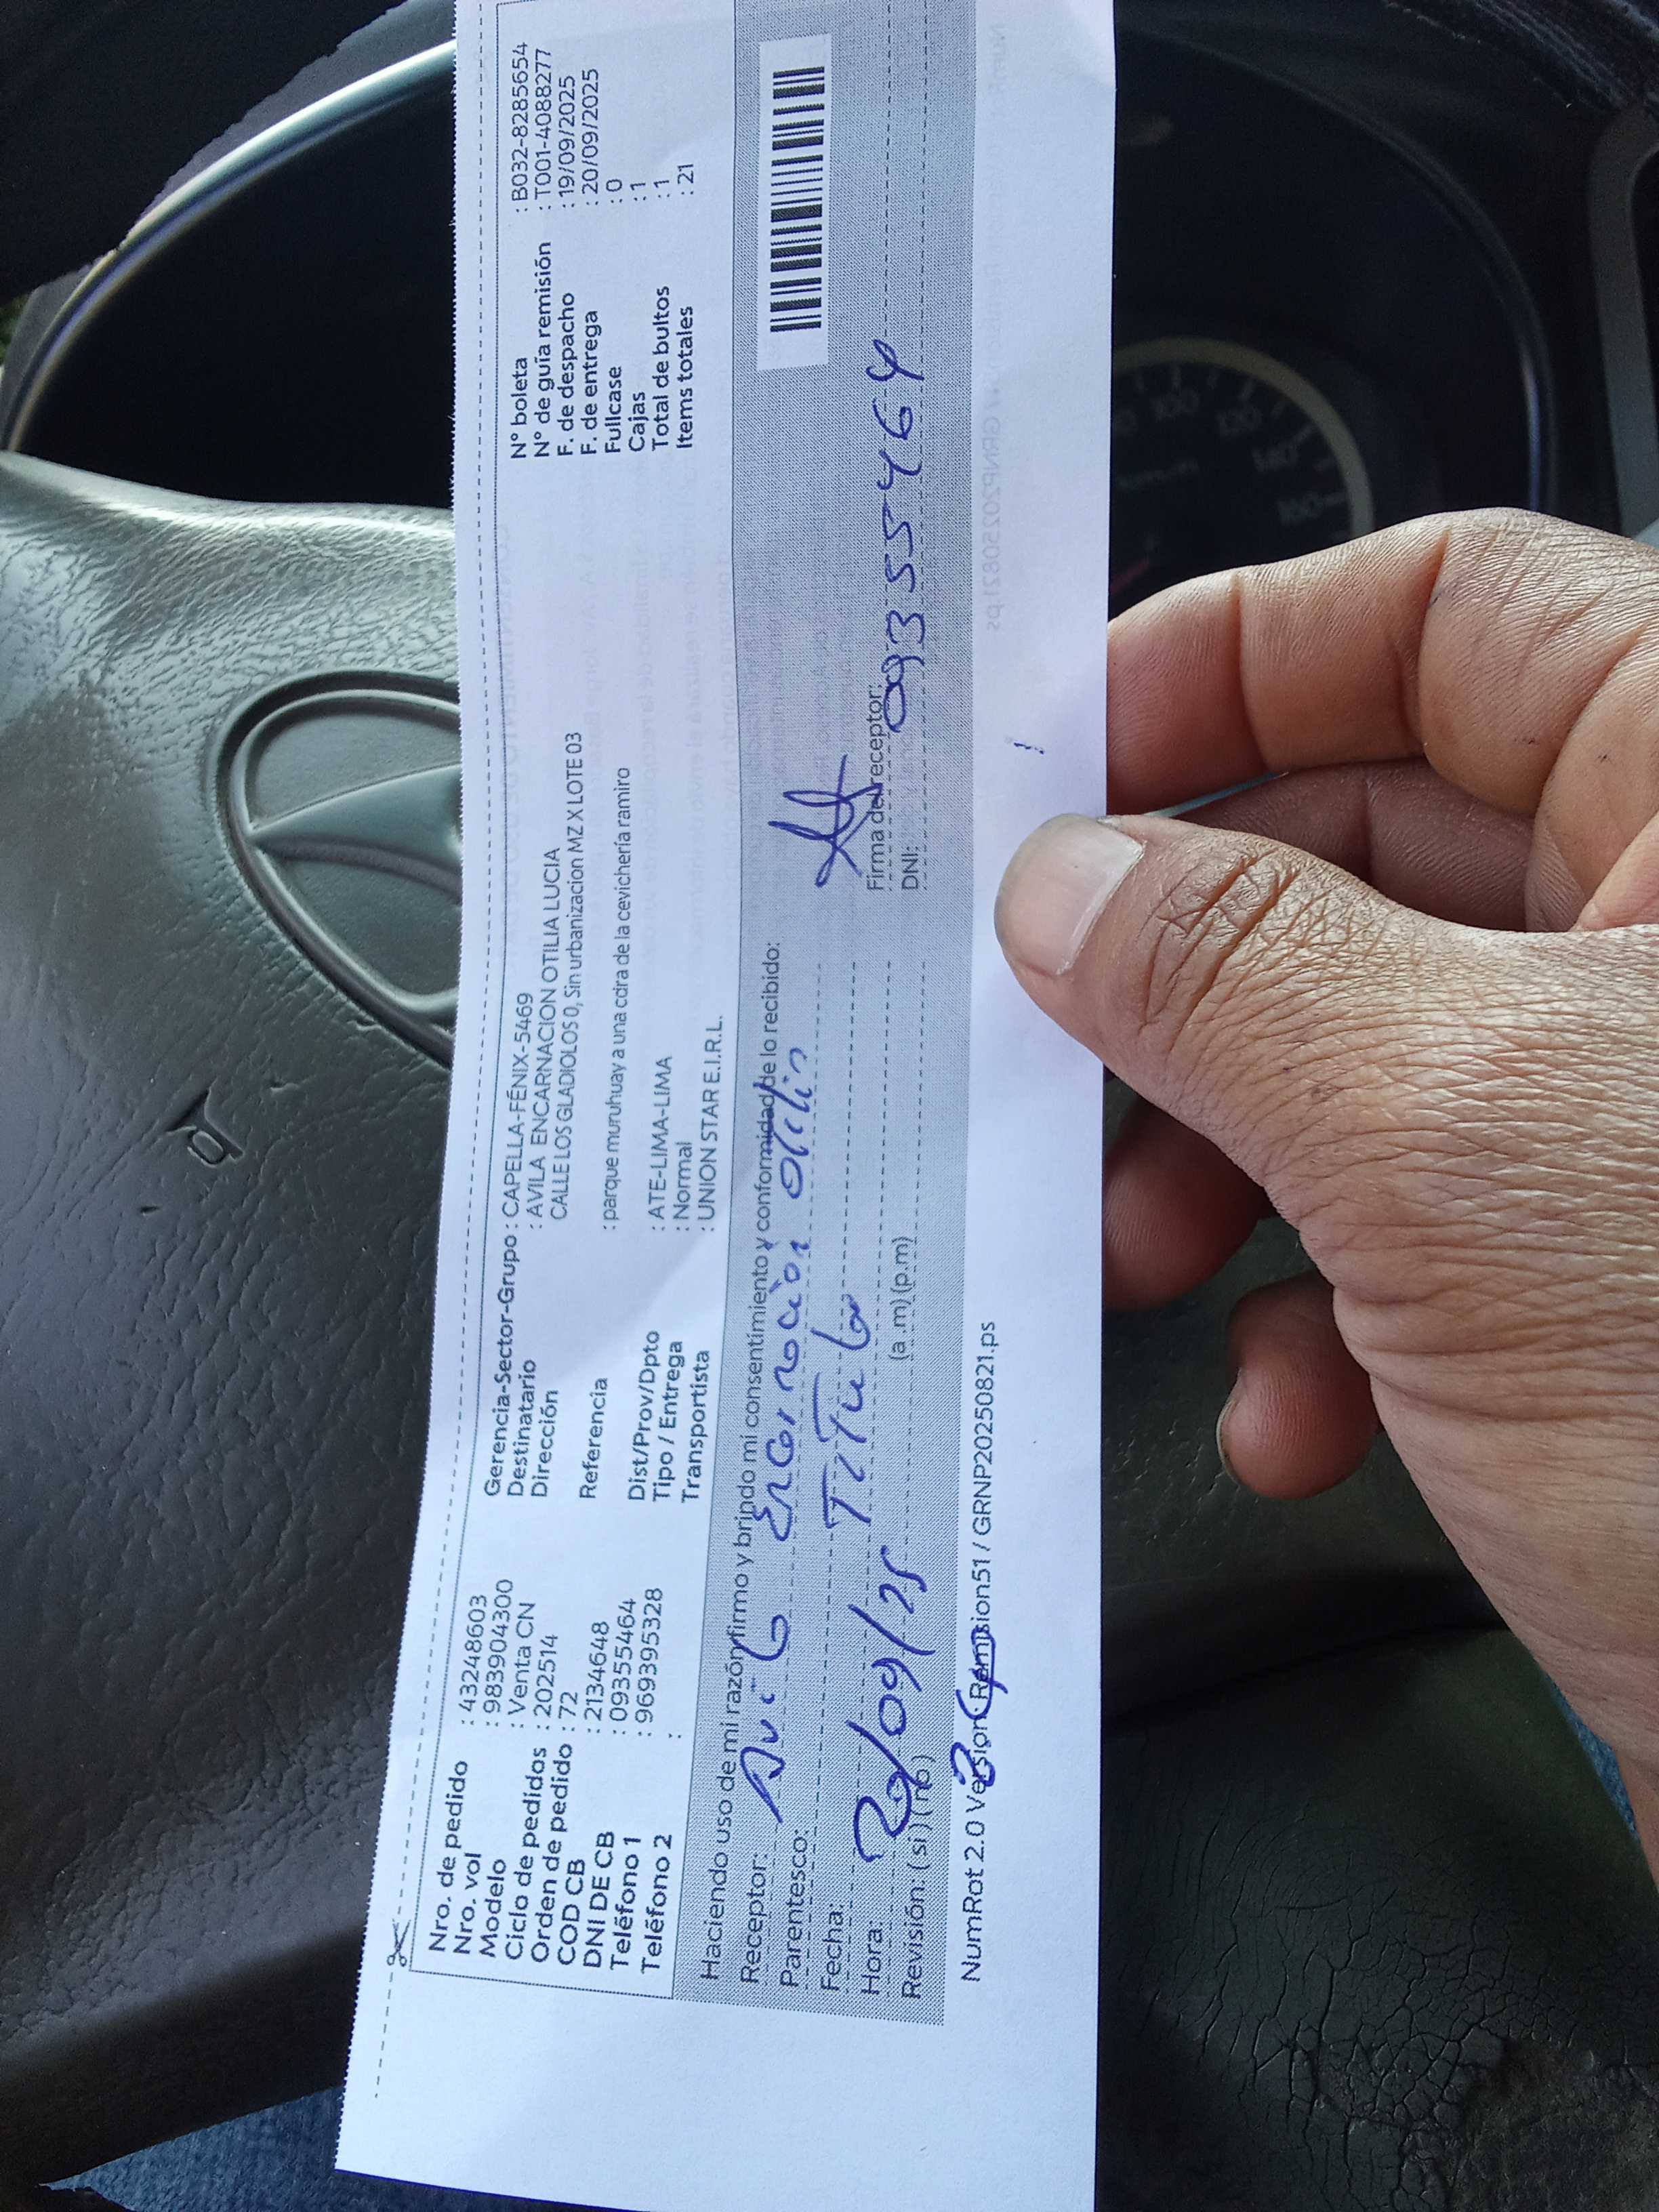 Nro. de pedido : 43248603
Nro. vol : 983904300
Modelo : Venta CN
Ciclo de pedidos : 202514
Orden de pedido : 72
COD CB : 2134648
DNI DE CB : 09355464
Teléfono 1 : 969395328
Teléfono 2 :
Gerencia-Sector-Grupo : CAPELLA-FÉNIX-5469
Destinatario : AVILA ENCARNACION OTILIA LUCIA
Dirección CALLE LOS GLADIOLOS 0, Sin urbanizacion MZ X LOTE 03
Referencia : parque muruhuay a una cdra de la cevichería ramiro
Dist/Prov/Dpto : ATE-LIMA-LIMA
Tipo / Entrega : Normal
Transportista : UNION STAR E.I.R.L.
N° boleta : B032-8285654
N° de guía remisión : T001-4088277
F. de despacho : 19/09/2025
F. de entrega : 20/09/2025
Fullcase : 0
Cajas : 1
Total de bultos : 1
Items totales : 21
Haciendo uso de mi razón firmo y brindo mi consentimiento y conformidad de lo recibido:
Receptor: Avila Encarnacion Otilia
Parentesco: Titular
Fecha: 20/09/25
Hora: (a .m) (p.m)
Revisión: ( si ) ( no )
Firma del receptor:
DNI: 09355464
NumRot 2.0 Version Remision51 / GRNP20250821.ps